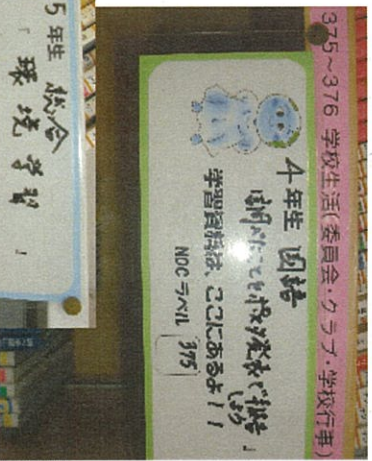 375~376 学校生活(委員会・クラブ・学校行事)
4年生 国語
「調べたことをポスター発表で報告しよう」
学習資料は、ここにあるよ!!
NDCラベル 375
5年生 総合
「環境学習」